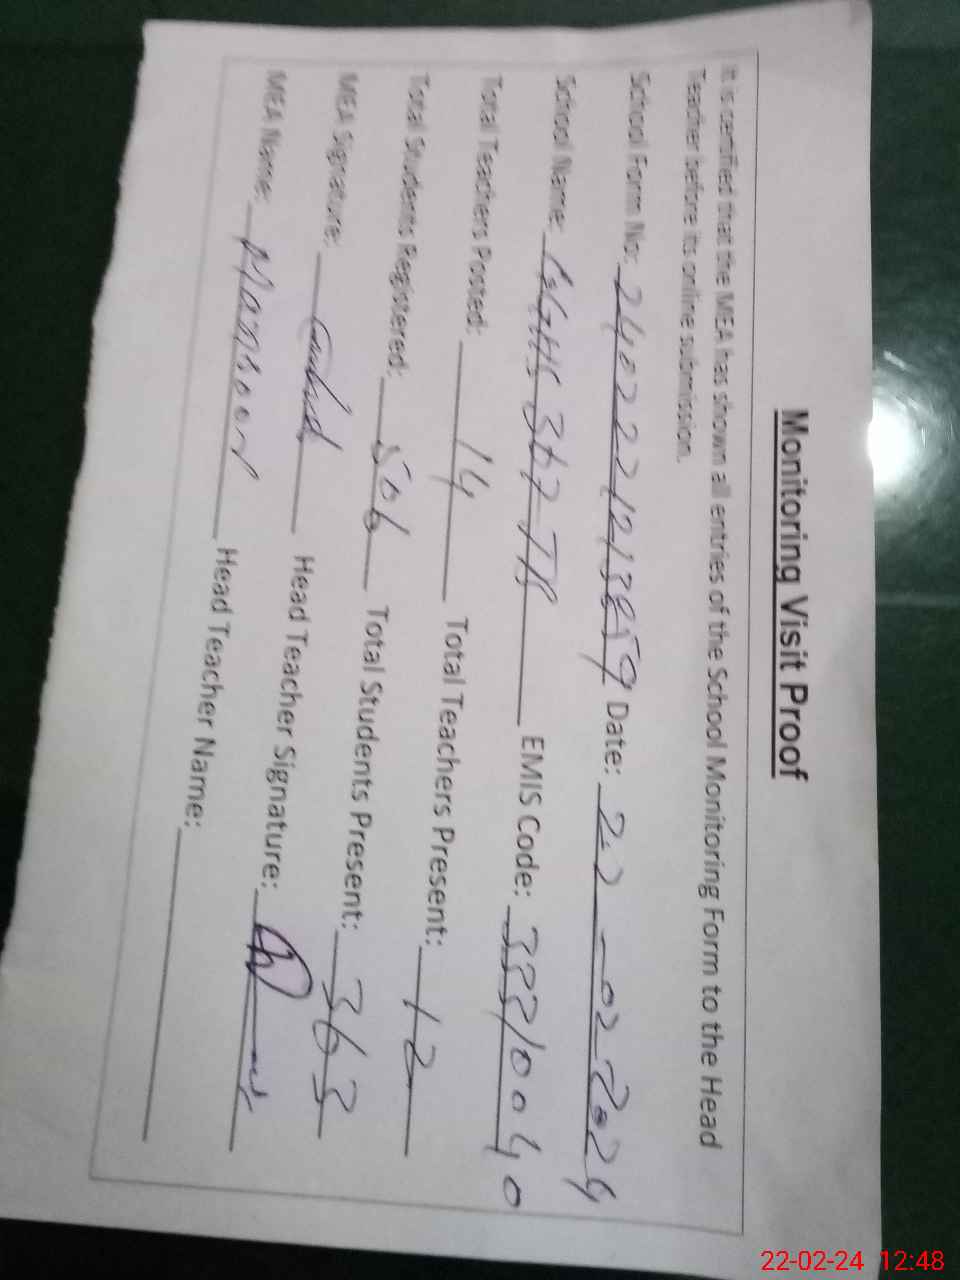 Monitoring Visit Proof
It is certified that the MEA has shown all entries of the School Monitoring Form to the Head
Teacher before its online submission.
School Form No: Date: 22-02-2024
School Name: GGHS 367 TB EMIS Code: 33210040
Total Teachers Posted: 14 Total Teachers Present: 12
Total Students Registered: 506 Total Students Present: 363
MEA Signature: Head Teacher Signature:
MEA Name: Mamoon Head Teacher Name:
22-02-24 12:48